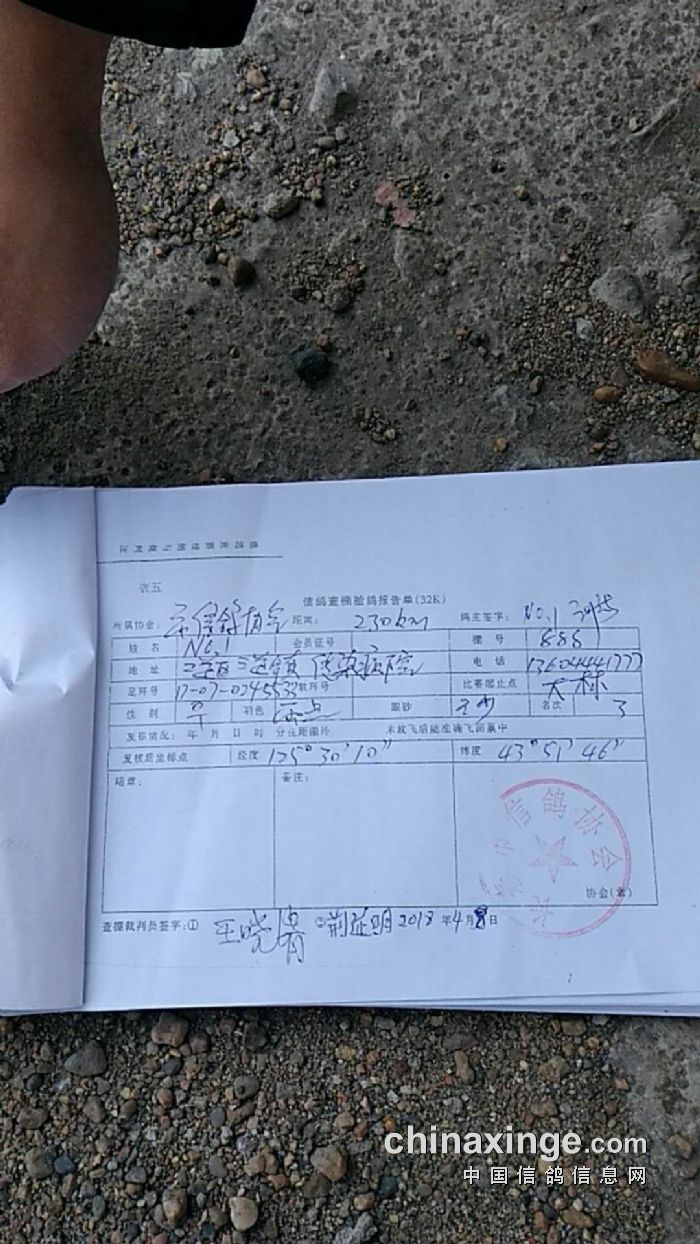 表五
信鸽查棚验鸽报告单(32K)
所属协会： 信鸽协会 距离： 230km 鸽主签字： No.1
姓 名 No.1 会员证号 棚 号 888
地 址 三道镇 传染病院 电 话 13604441777
足环号 17-07-0245533 软环号 比赛起止点 大林
性 别 ♀ 羽色 雨点 眼砂 名次 3
发棚情况： 年 月 日 时 分在距棚外 米放飞后能准确飞回巢中
发棚后坐标点 经度 125°30′10″ 纬度 43°51′46″
暗章： 备注：
市信鸽协会
协会(章)
查棚裁判员签字：① 王晓倩 ② 荆延明 2018 年 4 月 8 日
chinaxinge.com
中国信鸽信息网